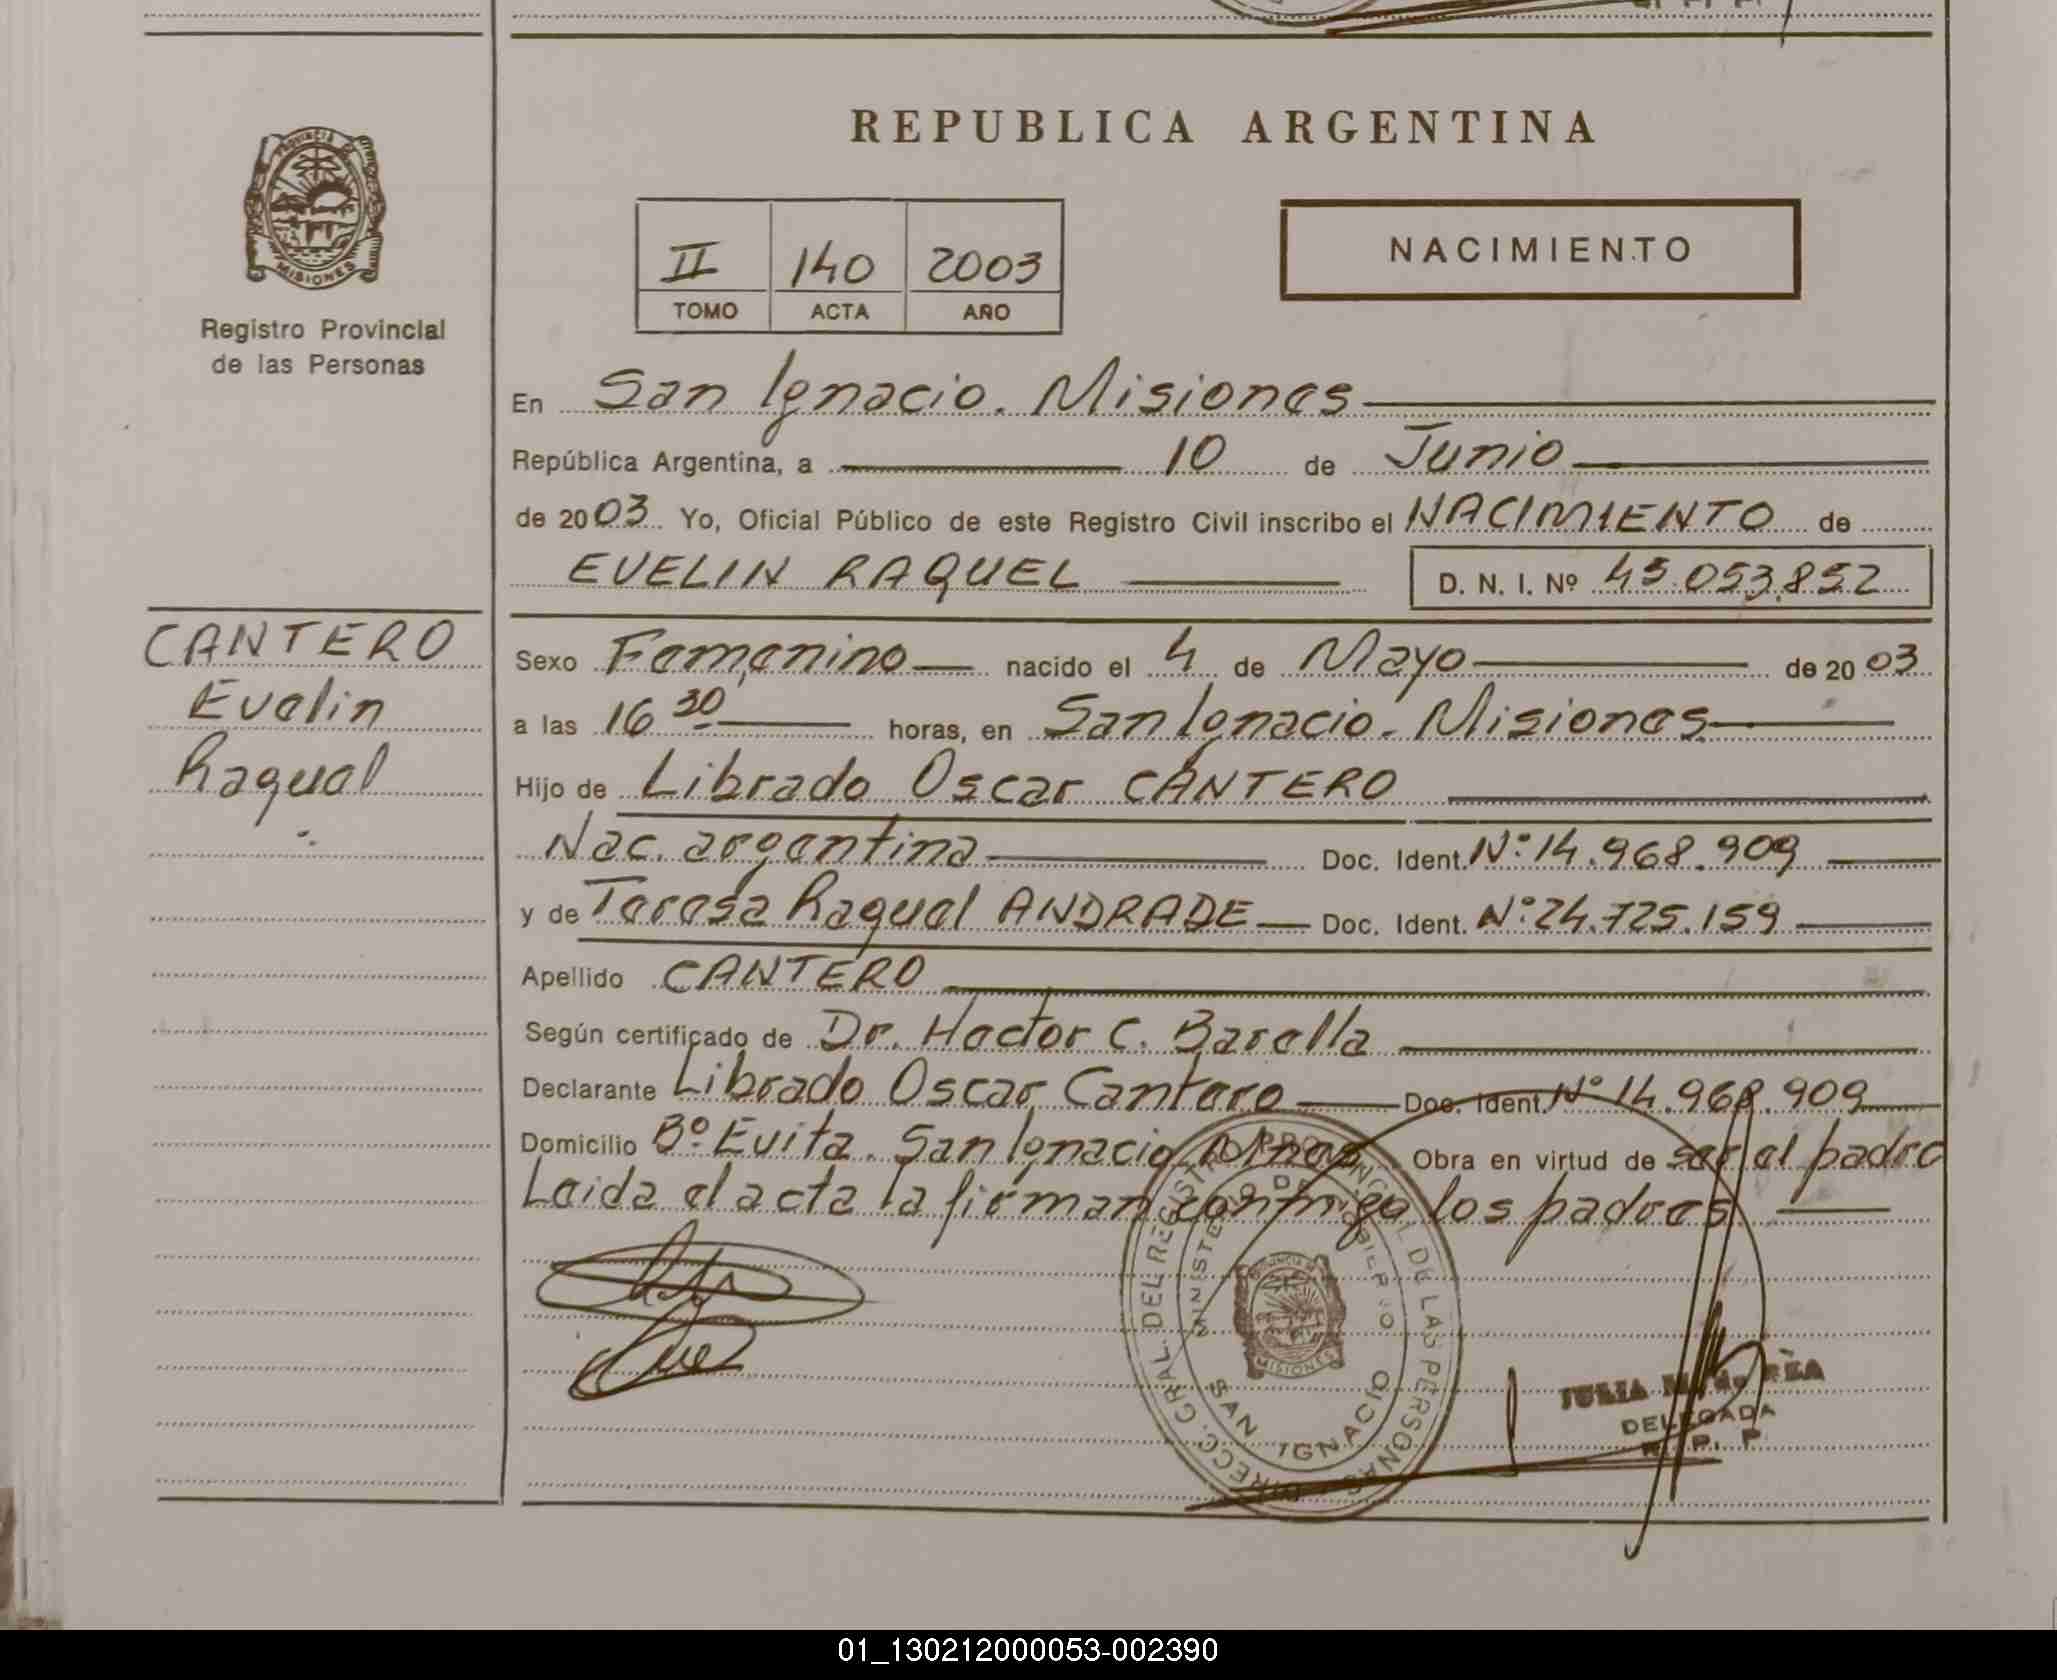 REPUBLICA ARGENTINA
PROVINCIA DE
MISIONES
Registro Provincial
de las Personas
II 140 2003
TOMO ACTA AÑO
NACIMIENTO
En San Ignacio. Misiones
República Argentina, a 10 de Junio
de 2003 Yo, Oficial Público de este Registro Civil inscribo el NACIMIENTO de
EVELIN RAQUEL D. N. I. Nº 45.053.852
CANTERO
Evelin
Raquel
Sexo Femenino nacido el 4 de Mayo de 2003
a las 16 30 horas, en San Ignacio. Misiones
Hijo de Librado Oscar CANTERO
Nac. argentina Doc. Ident. Nº: 14.968.909
y de Teresa Raquel ANDRADE Doc. Ident. Nº: 24.725.159
Apellido CANTERO
Según certificado de Dr. Hector C. Barella
Declarante Librado Oscar Cantero Doc. Ident. Nº 14.968.909
Domicilio Bº Evita. San Ignacio Mnes Obra en virtud de ser el padre
Leida el acta la firman conmigo los padres
DIRECC. GRAL. DEL REGISTRO PROVINCIAL DE LAS PERSONAS
MINISTERIO DE GOBIERNO
MISIONES
SAN IGNACIO
JULIA
DELEGADA
R. P. P.
01_130212000053-002390